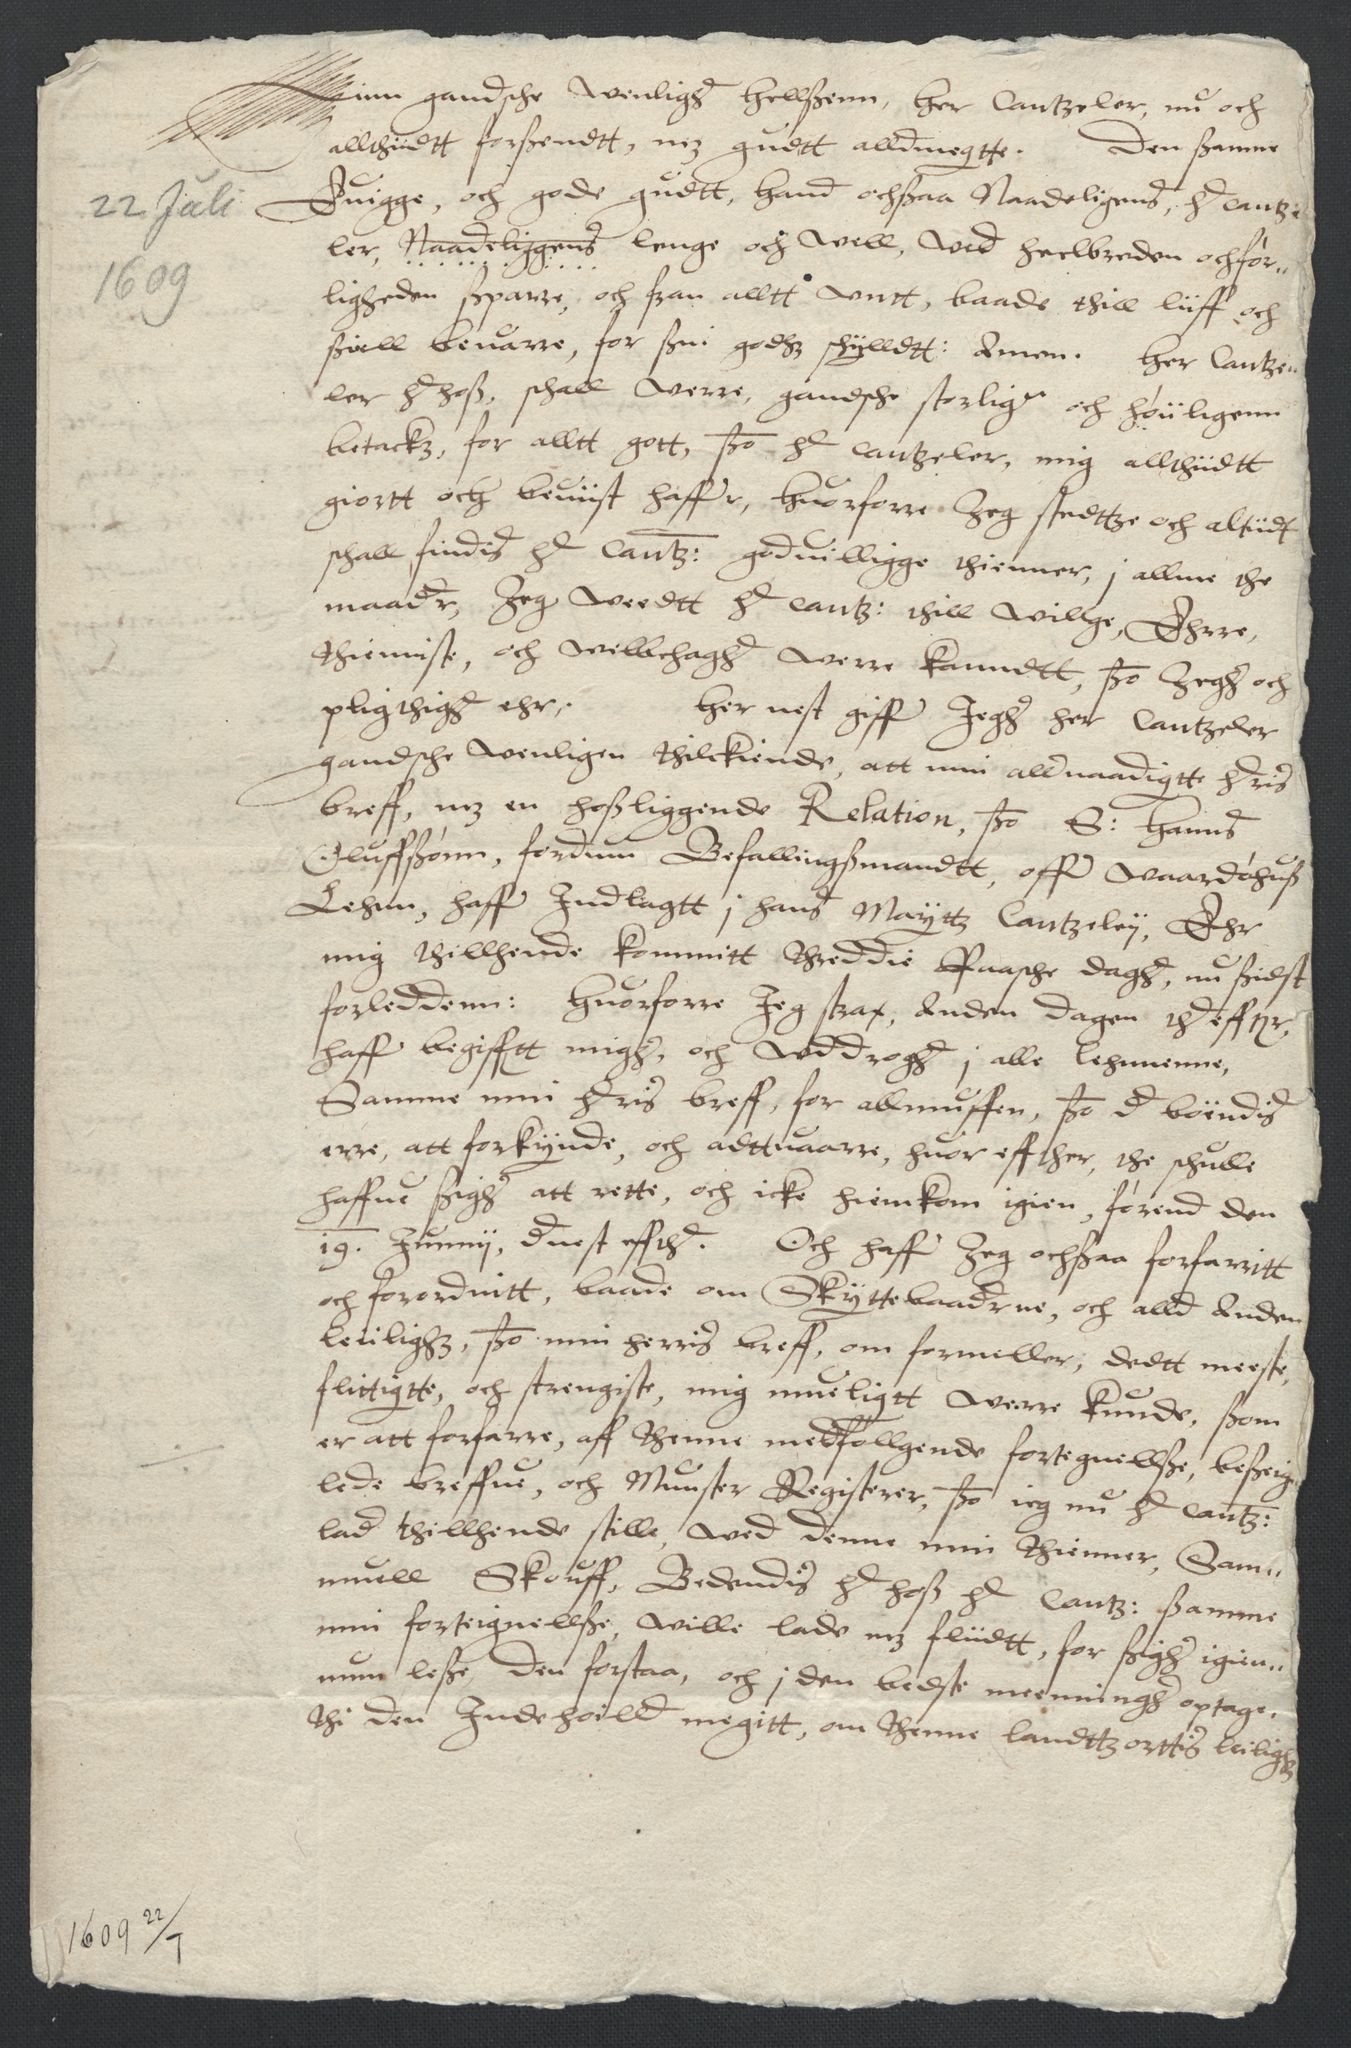 Minn gandsche Wenligh Hellßenn, her Cantzeler, nu och
allthiidtt forßendtt, mz gudtt alldmegtte. Den ßamme
Euigge, och gode gudtt, hand ochßaa Naadeligens, hr cantze
22 Juli
1609
ler, Naadeliggens lenge och Well, Wed heelbreden och før„
ligheden ßparre, och fran alltt Untt, baade thill liiff och
siell beuarre, for ßin godhz schylldtt: Amen. Her Cantze„
ler hr hoß, schall Werre, gandsche storliger och høuligenn
betackz, for alltt gott, ßo hr Cantzeler, mig allthiidtt
giortt och beuiist haffr, huorforre Jeg stedttze och altiidt
schall findis hr Cantz: goduilligge thienner, j allme the
maadr, Jeg Weedtt hr Cantz: thill Willge, Ehrre,
thienniste, och Welbehagh Werre kanndtt, ßo Jegh och
pligthigh ehr. Her nest giffr Jegh her Cantzeler
gandsche Wenligen thilkiende, att min allnaadigtte hris
breff, mz en hoßliggende Relation, ßo S: Hanns
Oluffßønn, fordum Befallingßmandtt, offr Waardøhuß
Lehnn, haffr Indlagtt j hans Mayttz Cantzelij, Ehr
mig thillhende kommitt thredie Paasche dagh, nu ßidst
forleddenn: Huorforre Jeg strax, Anden dagen thr effter,
haffr begifftt migh, och Uddrogh j alle lehnnenne,
Samme min hris breff, for allmuffen, ßo dr boendis
erre, att forkynde, och adttuaarre, huor effther, the schulle
haffue ßigh att rette, och icke hiemkom igien, førend den
19. Junnij, dr nest effthr. Och haffr Jeg ochßaa forfarritt
och forordnitt, baade om Skyttebaadrne, och alld Anden
leilighz, ßo min herris breff, om formeller, dedtt meeste,
flittigtte, och strengiste, mig mueligtt Werre kunde, ßom
er att forfarre, aff thenne medføllgende fortegnellße, beßeig
lede breffue, och Munster Registerer, ßo ieg nu hr Cantz:
lad thillhende stille, Wed denne min thienner, Sam„
muell Skouff, Bedendis hr hoß hr Cantz: ßamme
min forteignellße, Wille lade mz fliidtt, for ßigh igien„
num leße, den forstaa, och j den bedste meeningh optage.
thi den Indeholld megitt, om thenne landttz orttis leilighz
1609 22/7